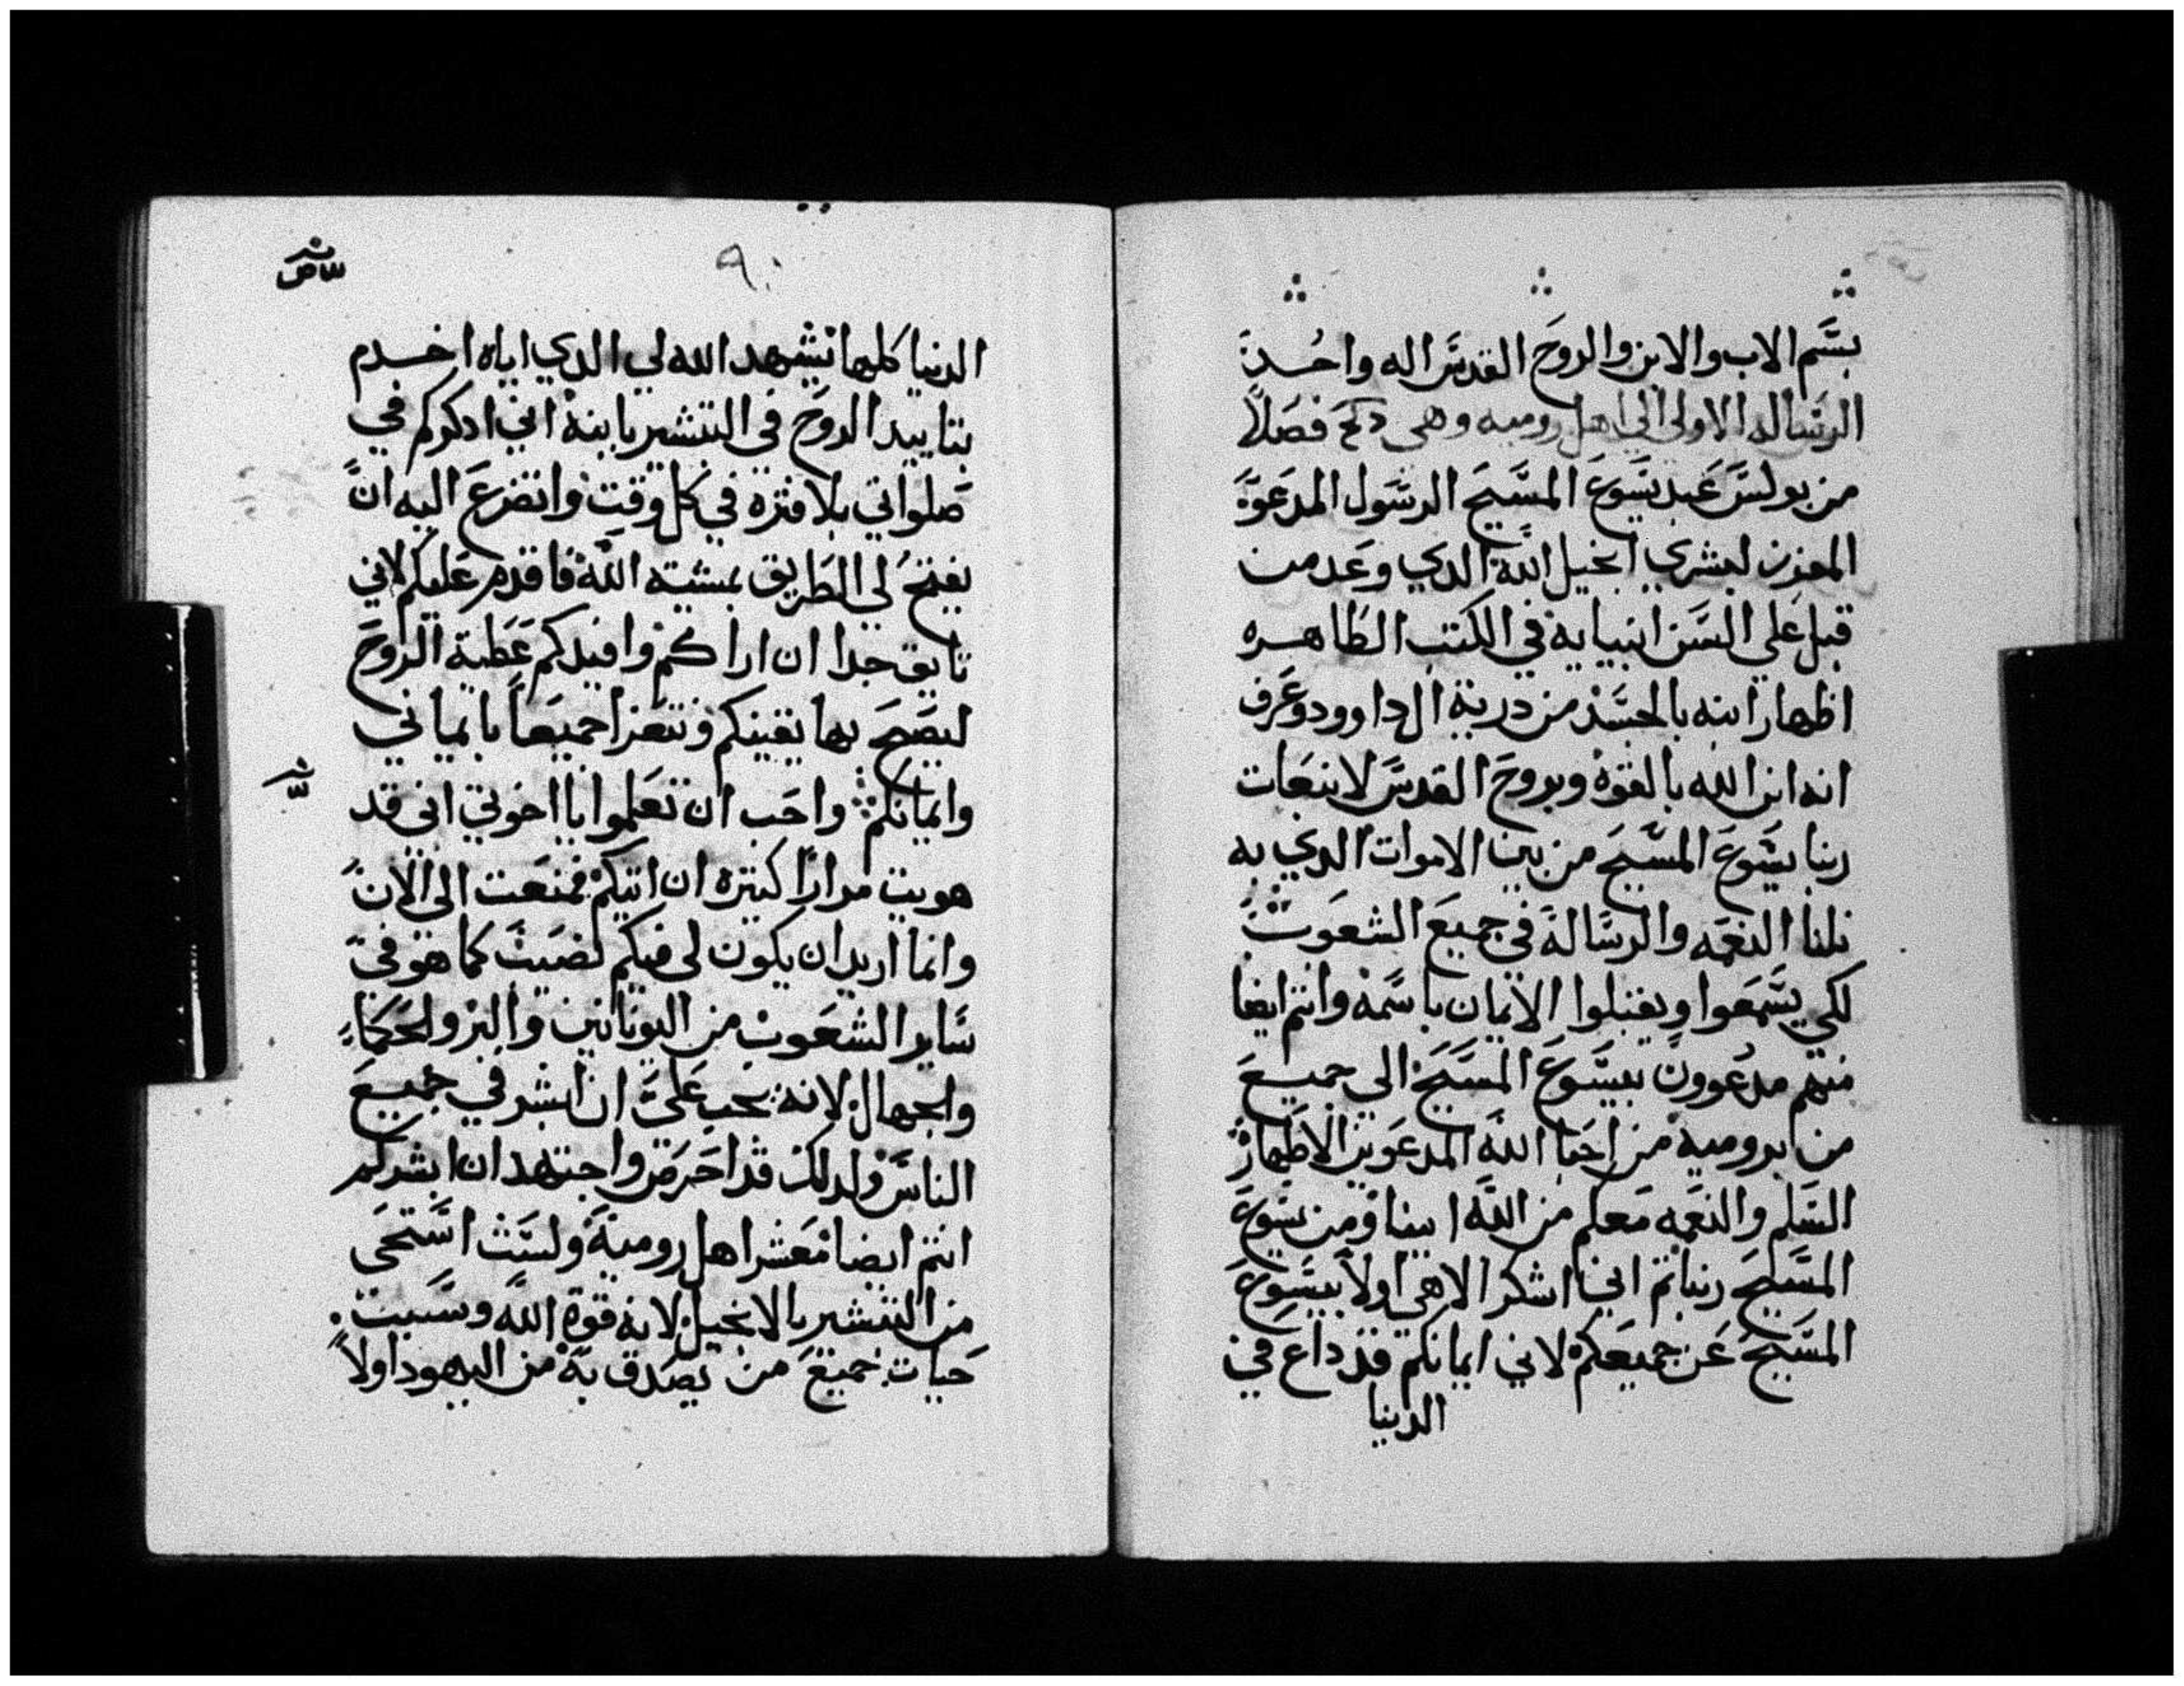 بسم الاب والابن والروح القدس اله واحد
الرساله الاولى الى اهل روميه وهى فصلا
من بولس عبد يسوع المسيح الرسول المدعوا
المفرز لبشري انجيل الله الدي وعد من
قبل علي السن انبيايه في الكتب الطاهره
اظهار ابنه بالجسد من درية ال داوود وعرف
انه ابن الله بالقوة وبروح القدس لانبعات
ربنا يسوع المسيح من بين الاموات الدي به
نلنا النعمه والرسالة في جميع الشعوب
لكي يسمعوا ويقبلوا الايمان باسمه وانتم ايضا
منهم مدعوون بيسوع المسيح الى جميع
من برومية من احبا الله المدعوين الاطهار
السلم والنعمه معكم من الله ابينا ومن يسوع
المسيح ربنا تم اني اشكر الاهي اولا بيسوع
المسيح عن جميعكم لاني ايمانكم قد داع في
الدنيا
٩٠
الدنيا كلها تشهد الله لي الدي اياه اخدم
بتاييد الروح في التبشير بابنه اني ادكركم في
صلواتي بلا فتره في كل وقت واتضرع اليه ان
يفتح لي الطريق بمشيته الله فاقدم عليكم لاني
تايق جدا ان اراكم وافيدكم عطية الروح
ليصح بها يقينكم ونتعزا جميعا بايماني
وايمانكم واحب ان تعلموا يا اخوتي اني قد
هويت مرارا كتيره ان اتيكم فمنعت الى الان
وانما اريد ان يكون لى فيكم نصيب كما هو في
ساير الشعوب من اليونانين والبر والحكماء
والجهال لانه يجب على ان ابشر في جميع
الناس ولدلك قد احرص واجتهد ان ابشركم
انتم ايضا معشر اهل رومية ولست استحى
من التبشير بالانجيل لانه قوة الله وسبب
حيات جميع من يصدق به من اليهود اولا